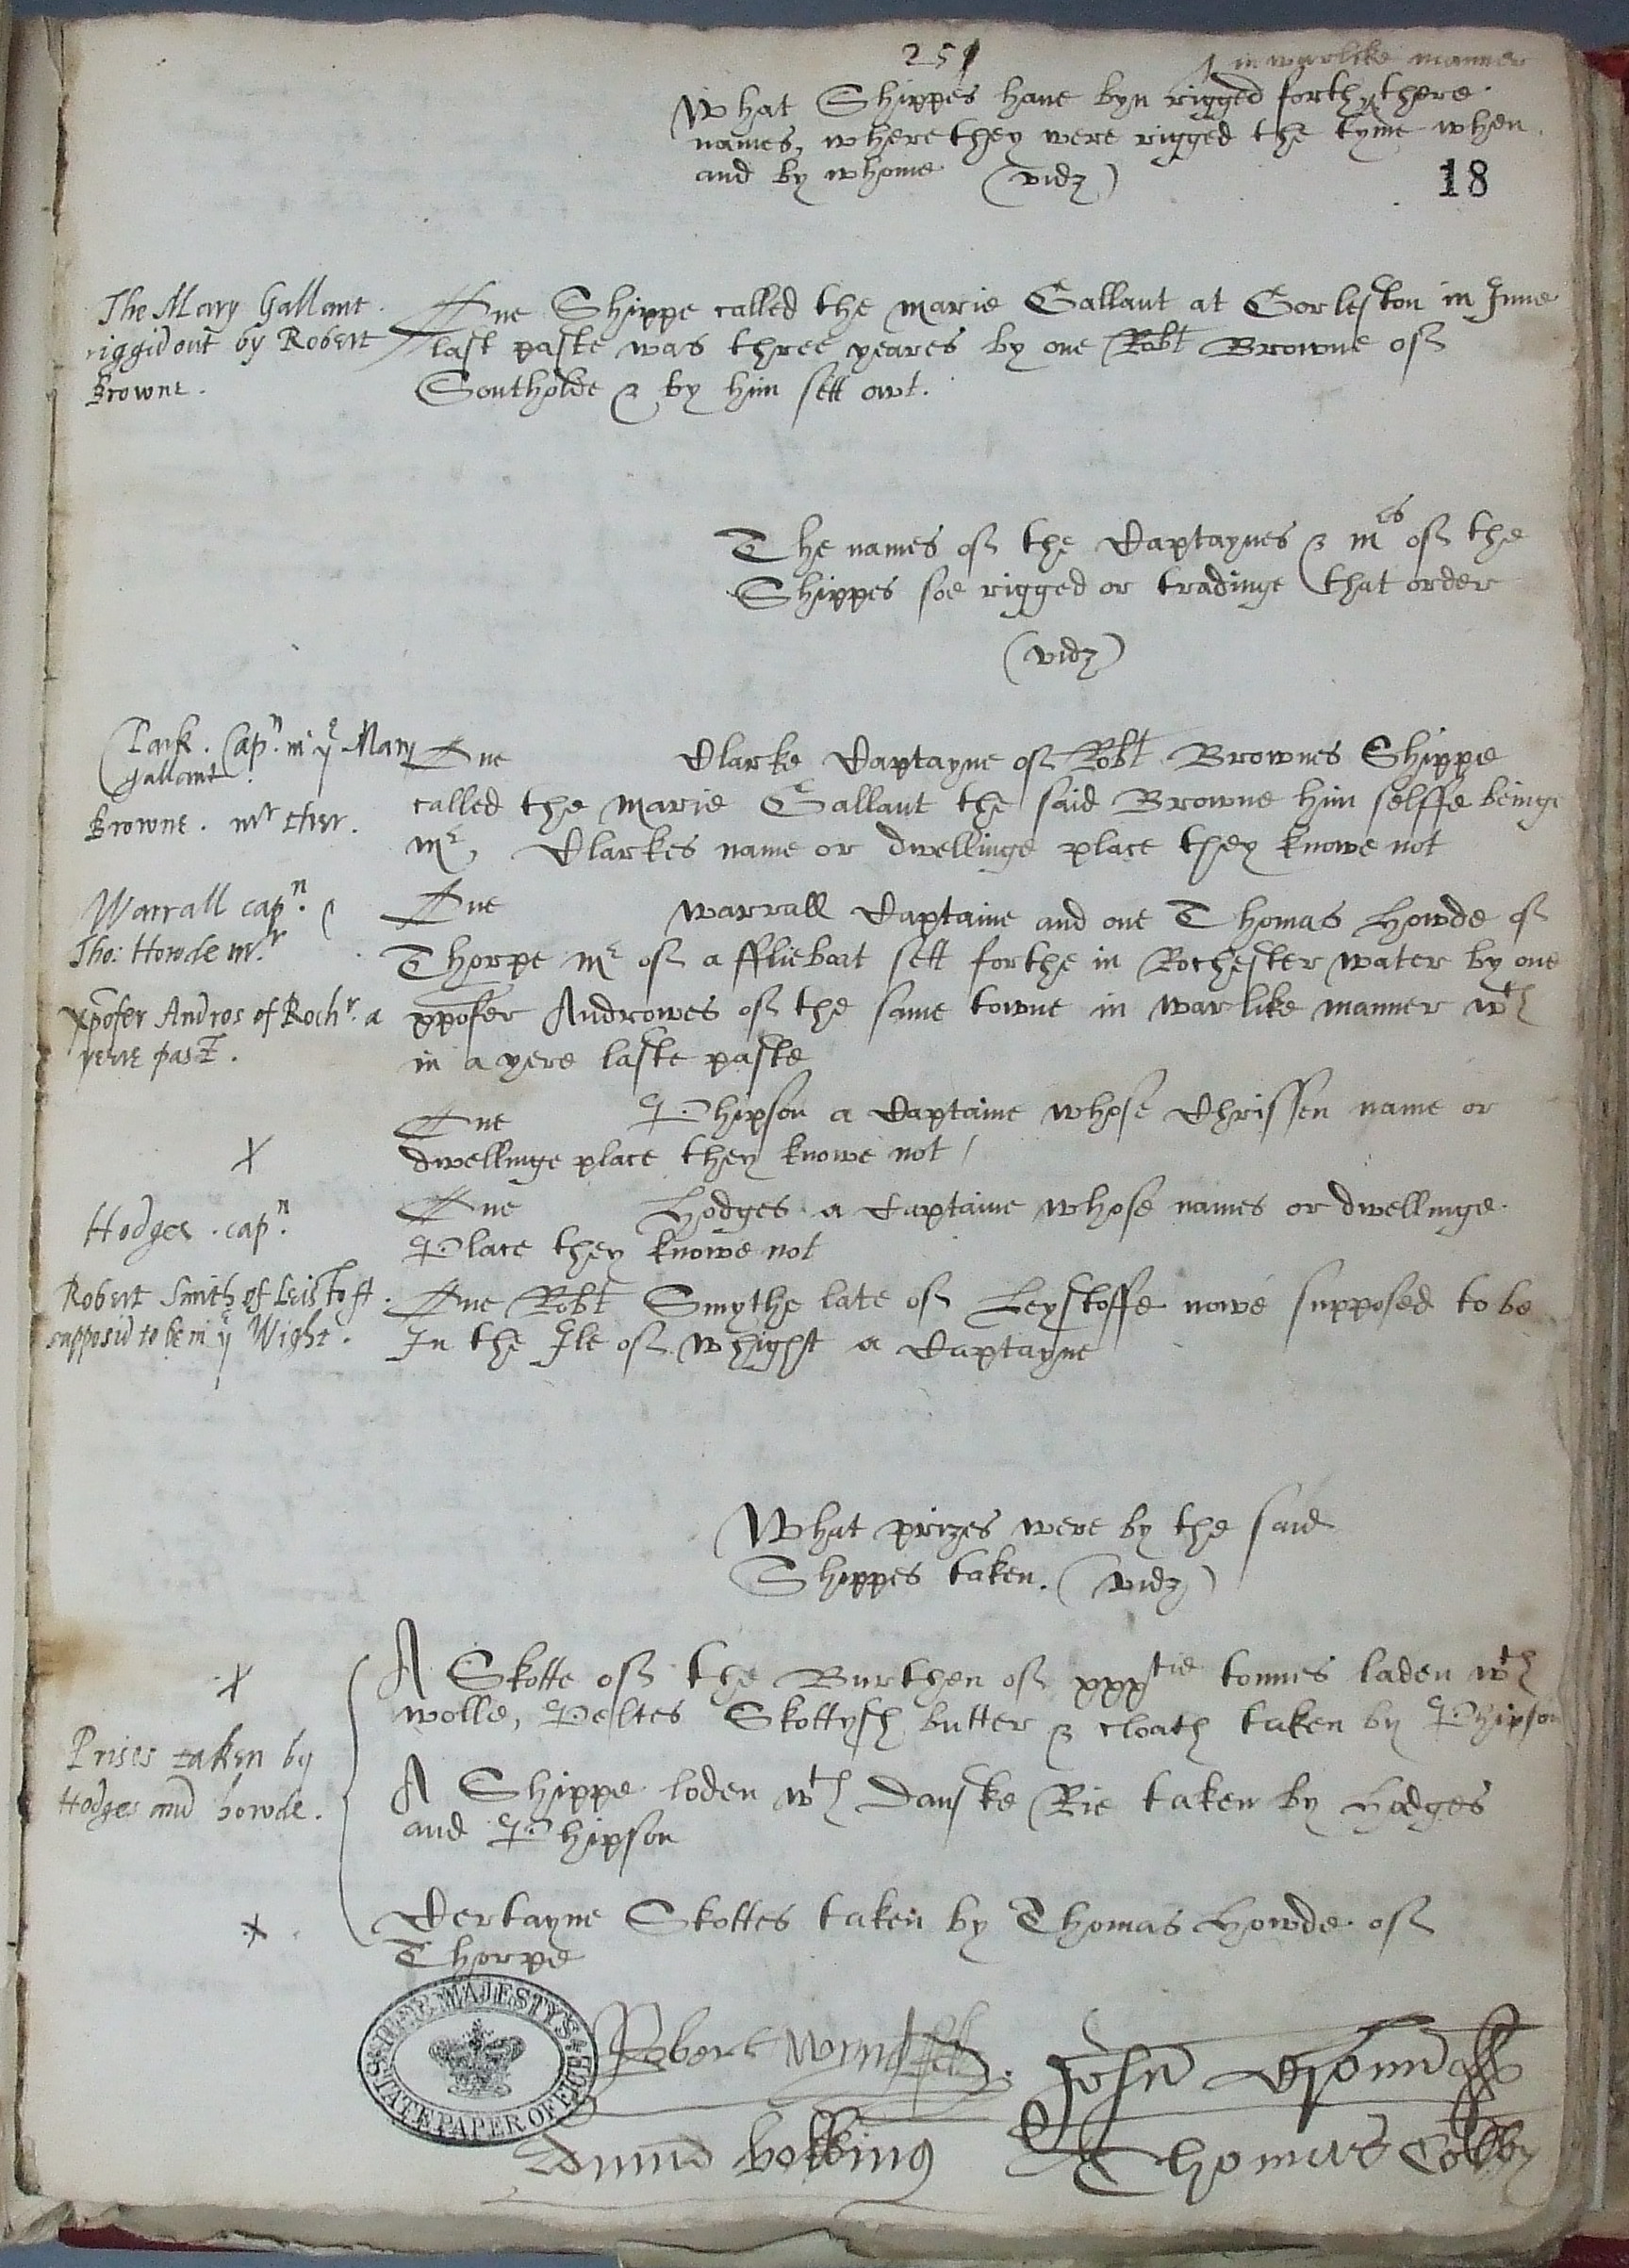 251
in warlike manner
What Shippes haue byn rigged forth there
names, where they were rigged the tyme when
and by whome (vidz)
18
The Mary Gallant
riggid out by Robert
Browne.
One Shippe called the Marie Gallant at Gorleston in June
last paste was three yeares by one Robt Browne of
Southolde & by him sett owt.
The names of the Captaynes & mres of the
Shippes soe rigged or tradinge that order
(vidz)
Clark. Capn. in ye Mary
Gallant.
Browne. mr ther.
One Clarke Captayne of Robt Brownes Shippe
called the Marie Gallant the said Browne him selffe beinge
mr, Clarkes name or dwellinge place they knowe not
Warrall capn.
Tho: Howde mr.
xpofer Andros of Rochr. a
yere past.
One Warrall Captaine and one Thomas Howde of
Thorpe mr of a fflieboat sett forthe in Rochester water by one
xpofer Androwes of the same towne in warlike manner wth
in a yere laste paste
X
One Phipson a Captaine whose Chrissen name or
dwellinge place they knowe not /
Hodges. capn.
One Hodges a Captaine whose names or dwellinge
Place they knowe not
Robert Smith of Leistoft.
supposid to be in ye Wight.
One Robt Smythe late of Leystoffe nowe supposed to be
In the Ile of whight a Captayne
What prizes were by the said
Shippes taken. (vidz)
X
Prises taken by
Hodges and howde.
X
A Skotte of the Burthen of xxxtie tonnes laden wth
wolle, Peltes Skottysh butter & cloath taken by Phipson
A Shippe loden wth Danske Rie taken by Hodges
and Phipson
Certayne Skottes taken by Thomas Howde of
Thorpe
HER MAJESTY'S
STATE PAPER OFFICE
Robert
John
Thomas Colby